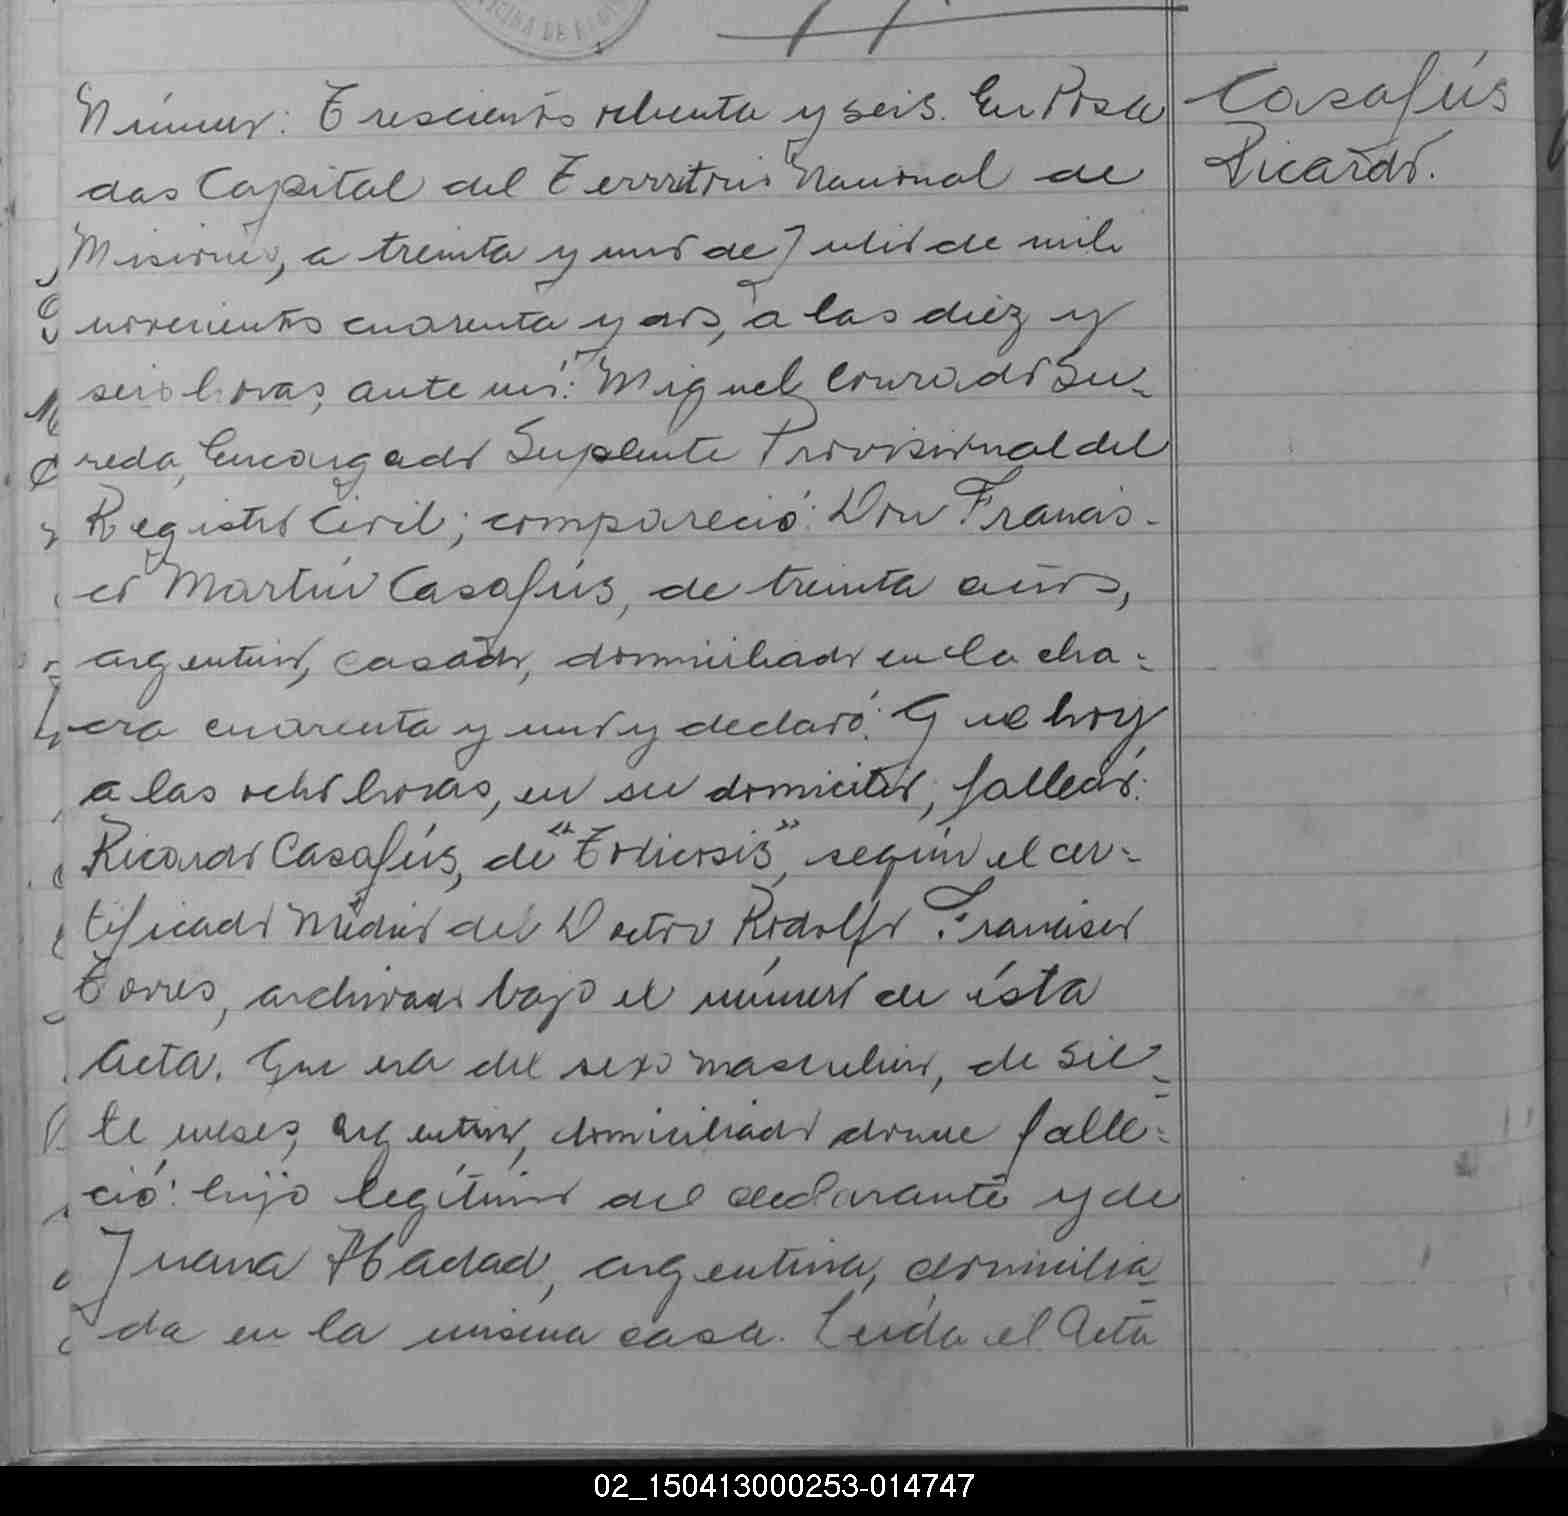 OFICINA DE
Número: Trescientos ochenta y seis. En Posa
Casafús
das Capital del Territorio Nacional de
Ricardo.
Misiones, a treinta y uno de Julio de mil
novecientos cuarenta y dos, a las diez y
seis horas, ante mí: Miguel Conrado Su-
reda, Encargado Suplente Provisional del
Registro Civil; compareció: Don Francis-
co Martín Casafús, de treinta años,
argentino, casado, domiciliado en la cha-
cra cuarenta y uno y declaró: Que hoy
a las ocho horas, en su domicilio, falleció:
Ricardo Casafús, de "Toxicosis", según el cer-
tificado Médico del Doctor Rodolfo Francisco
Torres, archivado bajo el número de ésta
Acta. Que era del sexo masculino, de sie-
te meses, argentino, domiciliado donde falle-
ció: hijo legítimo del declarante y de
Juana Hadad, argentina, domicilia-
da en la misma casa. Leída el Acta
02_150413000253-014747